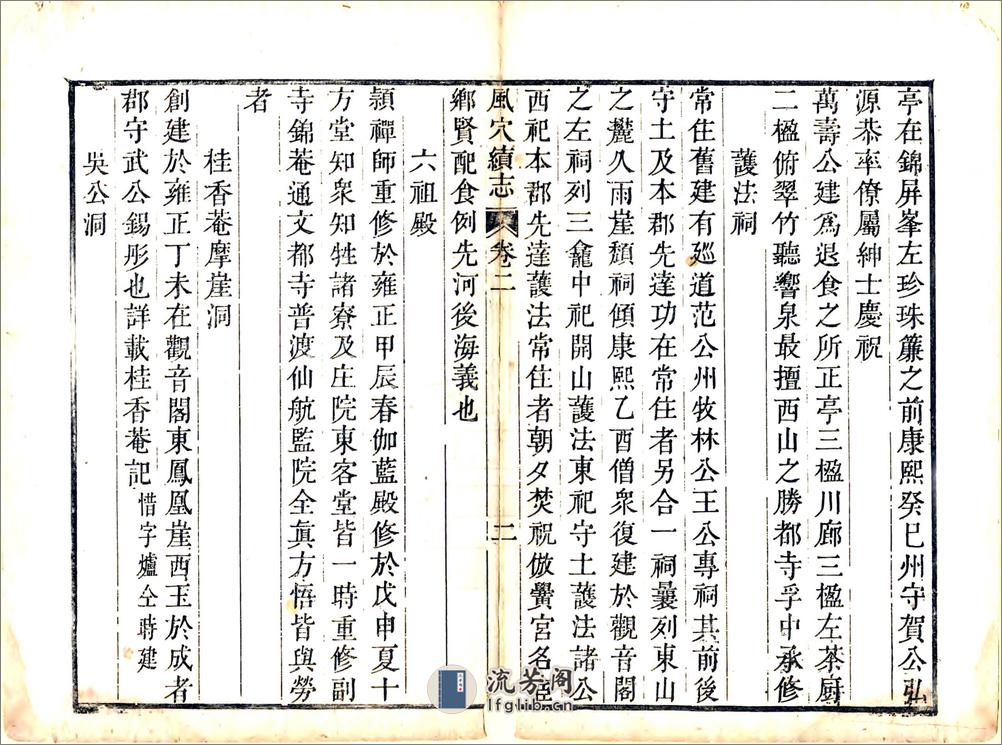 亭在錦屏峯左珍珠簾之前康熙癸巳州守賀公弘
源恭率僚屬紳士慶祝
萬壽公建爲退食之所正亭三楹川廊三楹左茶厨
二楹俯翠竹聽響泉最擅西山之勝都寺孚中承修
護法祠
常住舊建有廵道范公州牧林公王公專祠其前後
守土及本郡先達功在常住者另合一祠曩列東山
之麓久雨崖頽祠傾康熙乙酉僧衆復建於觀音閣
之左祠列三龕中祀開山護法東祀守土護法諸公
西祀本郡先達護法常住者朝夕焚祝倣黌宮名宦
風穴續志 卷二 二
鄉賢配食例先河後海義也
六祖殿
頴禪師重修於雍正甲辰春伽藍殿修於戊申夏十
方堂知衆知牲諸寮及庄院東客堂皆一時重修副
寺錦菴通文都寺普渡仙航監院全眞方悟皆與勞
者
桂香菴摩崖洞
創建於雍正丁未在觀音閣東鳳凰崖西玉於成者
郡守武公錫彤也詳載桂香菴記惜字爐仝時建
吳公洞
流芳阁
lfglib.cn